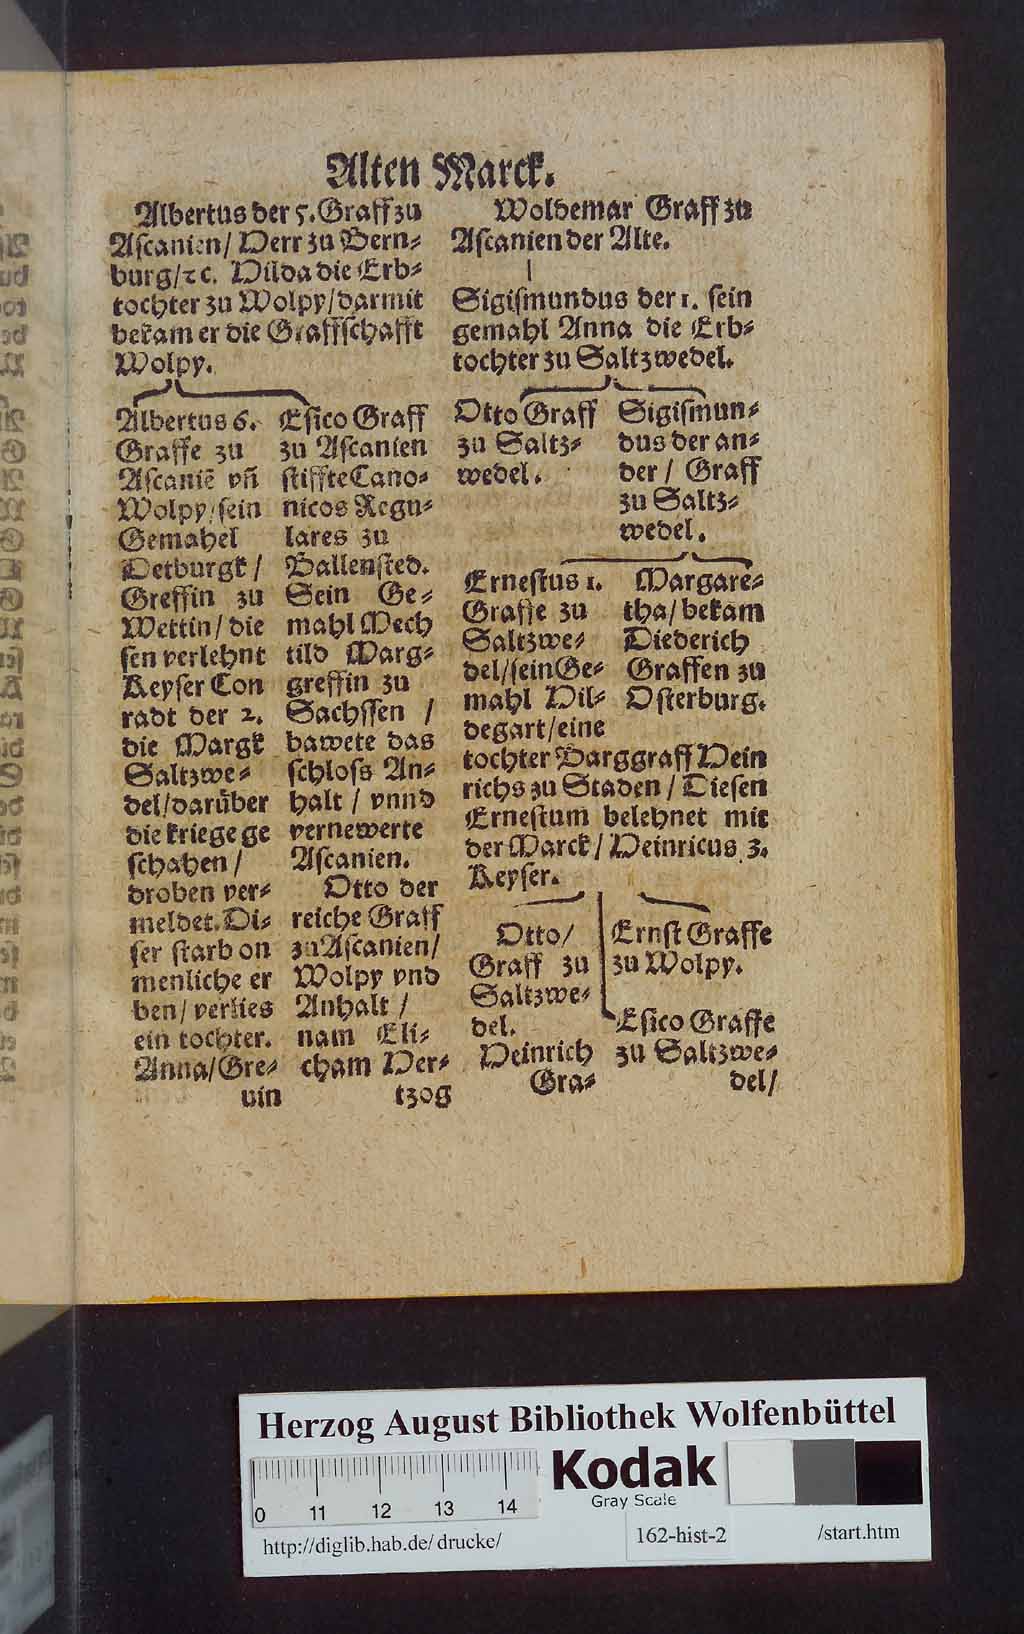 Alten Marck.
Albertus der 5. Graff zu
Aſcanien/ Herr zu Bern⸗
burg/ꝛc. Hilda die Erb⸗
tochter zu Wolpy/darmit
bekam er die Graffſchafft
Wolpy.
Albertus 6.
Graffe zu
Aſcaniē vñ
Wolpy/ſein
Gemahel
Hetburgk /
Greffin zu
Wettin/ die
ſen verlehnt
Keyſer Con
radt der 2.
die Margk
Saltzwe⸗
del/darüber
die kriege ge
ſchahen /
droben ver⸗
meldet. Di⸗
ſer ſtarb on
menliche er
ben/ verlies
ein tochter.
Anna/Gre⸗
uin
Eſico Graff
zu Aſcanien
ſtiffte Cano⸗
nicos Regu⸗
lares zu
Ballenſted.
Sein Ge⸗
mahl Mech
tild Marg⸗
greffin zu
Sachſſen /
bawete das
ſchloſs An⸗
halt / vnnd
vernewerte
Aſcanien.
Otto der
reiche Graff
zu Aſcanien/
Wolpy vnd
Anhalt /
nam Eli⸗
cham Her⸗
tzog
Woldemar Graff zu
Aſcanien der Alte.
Sigiſmundus der 1. ſein
gemahl Anna die Erb⸗
tochter zu Saltzwedel.
Otto Graff
zu Saltz⸗
wedel.
Sigiſmun⸗
dus der an⸗
der / Graff
zu Saltz⸗
wedel.
Erneſtus 1.
Graffe zu
Saltzwe⸗
del/ſein Ge⸗
mahl Hil⸗
degart/eine
Margare⸗
tha/ bekam
Diederich
Graffen zu
Oſterburg.
tochter Barggraff Hein
richs zu Staden / Dieſen
Erneſtum belehnet mit
der Marck / Heinricus 3.
Keyſer.
Otto/
Graff zu
Saltzwe⸗
del.
Heinrich
Gra⸗
Ernſt Graffe
zu Wolpy.
Eſico Graffe
zu Saltzwe⸗
del/
Herzog August Bibliothek Wolfenbüttel
0 11 12 13 14
Kodak
Gray Scale
http://diglib.hab.de/ drucke/
162-hist-2
/start.htm